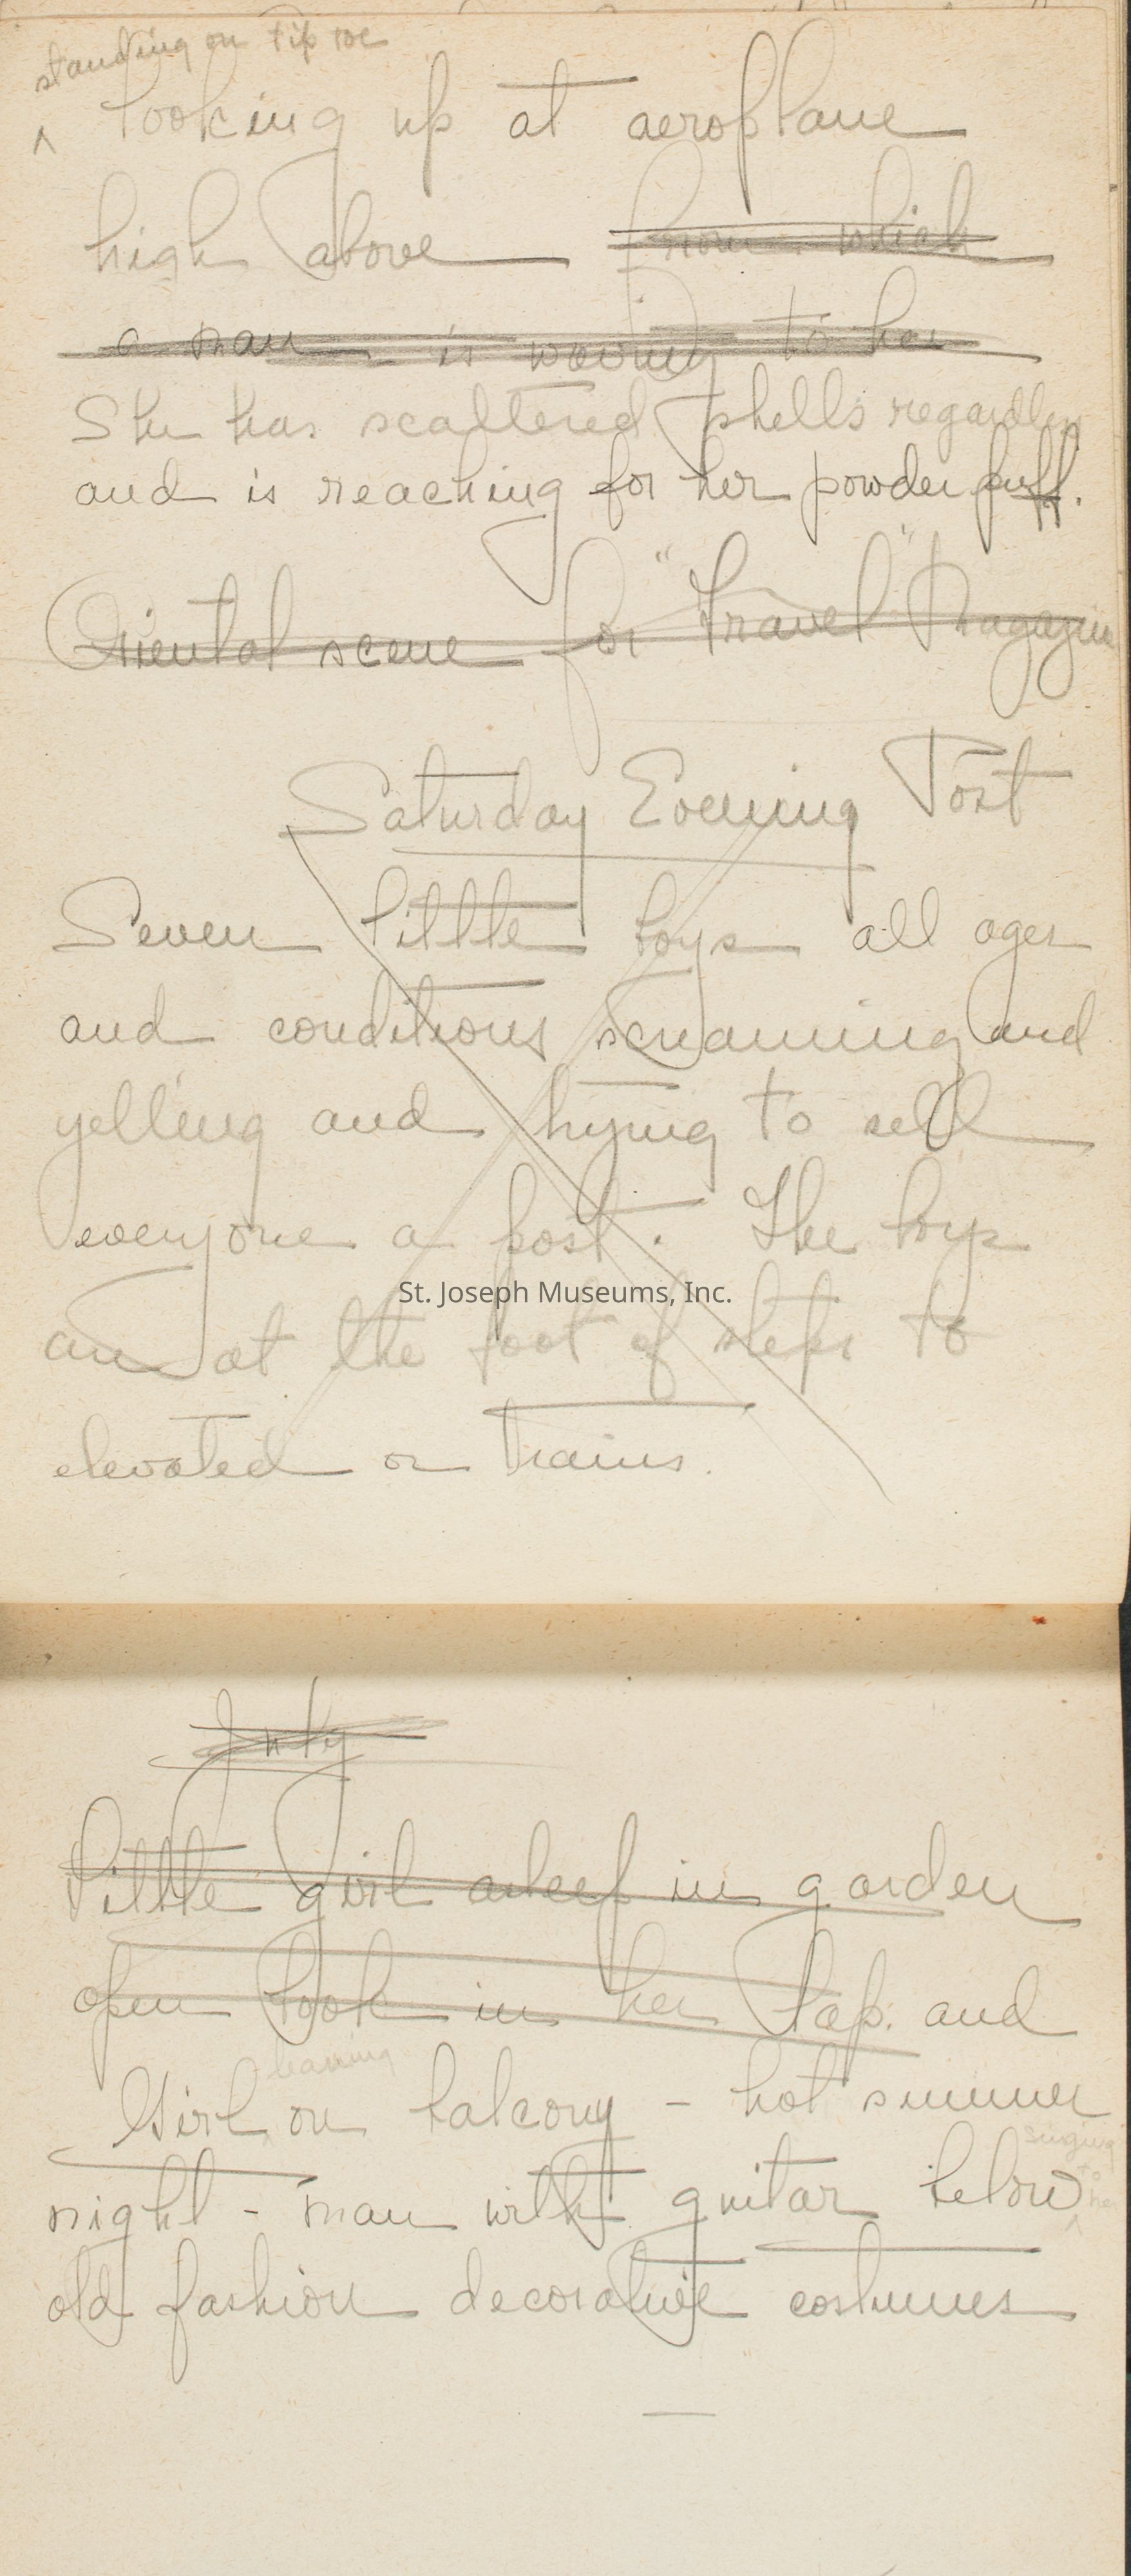 standing on tip toe
^ looking up at aeroplane
high above from which
a man is waving to her
She has scattered shells regardless
and is reaching for her powder puff.
Oriental scene for "Travel" Magazine
Saturday Evening Post
Seven little boys all ages
and conditions screaming and
yelling and trying to sell
everyone a post. The boys
are at the foot of steps to
St. Joseph Museums, Inc.
elevated or trains.
Little girl asleep in garden
open book in her lap. and
leaning
Girl on balcony - hot summer
singing to her
night - man with guitar below ^
old fashion decorative costumes